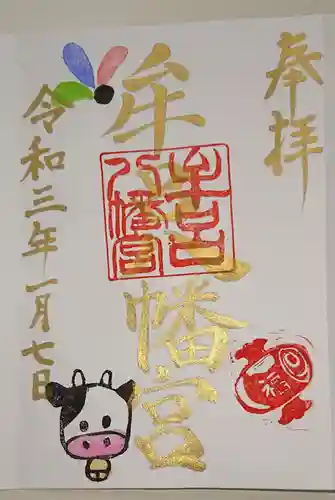 奉拝
牟呂八幡宮
牟呂
八幡宮
令和三年一月七日
福